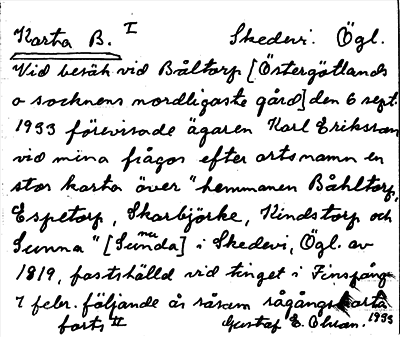 Karta B. I Skedevi. Ögl.
Vid besök vid Båltorp [Östergötlands
o socknens nordligaste gård] den 6 sept.
1933 förevisade ägaren Karl Eriksson
vid mina frågor efter ortsnamn en
stor karta över "hemmanen Båhltorp,
Espetorp, Skarbjörke, Kindstorp och
Sunna" [Sunda] nu i Skedevi, Ögl. av
1819, fastställd vid tinget i Finspång
7 febr. följande år såsom rågångskarta
forts II Gustaf E. Olsson. 1933